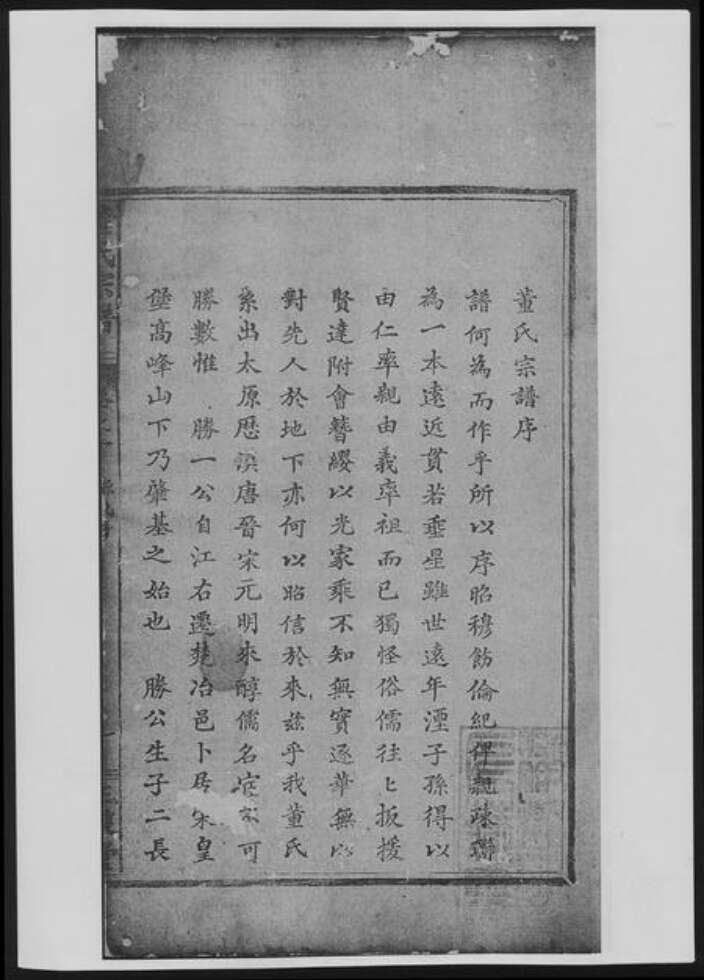 董氏宗譜序
譜何為而作乎所以序昭穆飭倫紀俾親疎聯
為一本遠近貫若垂星雖世遠年湮子孫得以
由仁率親由義率祖而已獨怪俗儒往ヒ扳援
賢達附會簪纓以光家乘不知無實逐華無以
對先人於地下亦何以昭信於來茲乎我董氏
系出太原歷漢唐晉宋元明來醇儒名宦不可
勝數惟 勝一公自江右遷楚冶邑卜居宋皇
堡高峰山下乃肇基之始也 勝公生子二長
氏宗譜